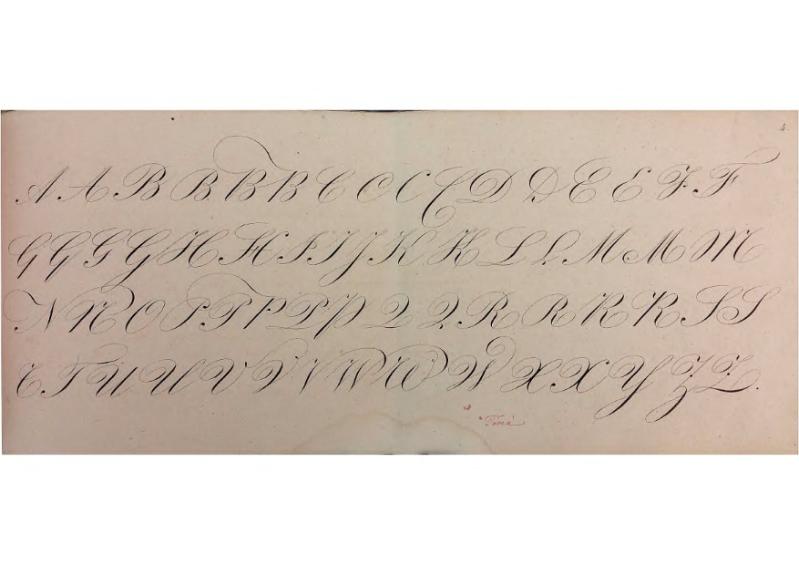 4.
A A B B B B C C C C D D E E F F
G G G G H H I I J K K L L M M M
N N O P P P P P Q Q R R R R S S
T T U U V V V W W W X X Y Z Z.